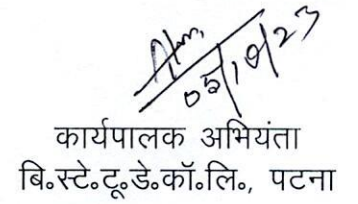 05/10/23
कार्यपालक अभियंता
बि॰स्टे॰टू॰डे॰कॉ॰लि॰, पटना